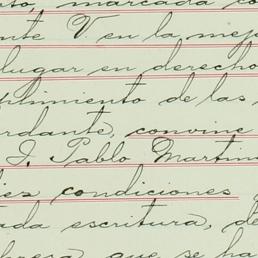 to, marcada co
nte V. en la mej
lugar en derecho
plimiento de las
rdante, convine
I. Pablo Martin
ies condiciones
ada escritura, de
bresa que se ha